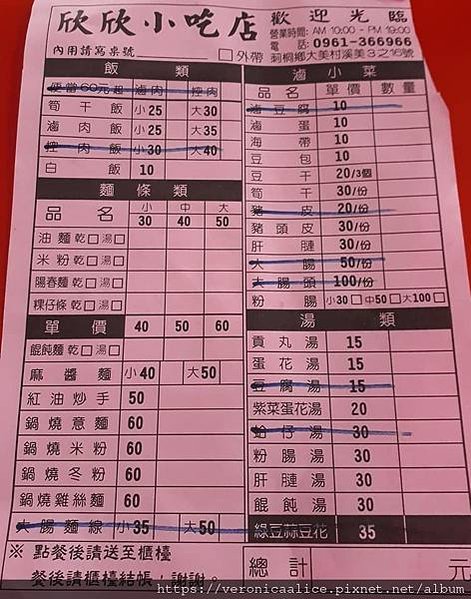 欣欣小吃店
歡迎光臨
營業時間: AM 10:00 - PM 19:00
電話: 0961-366966
內用請寫桌號 □外帶 莿桐鄉大美村溪美3之16號
飯類
便當60元起 滷肉 控肉
筍干飯 小25 大30
滷肉飯 小25 大35
控肉飯 小30 大40
白飯 10
麵條類
品名 小30 中40 大50
油麵 乾□湯□
米粉 乾□湯□
陽春麵 乾□湯□
粿仔條 乾□湯□
單價 40 50 60
餛飩麵 乾□湯□
麻醬麵 小40 大50
紅油炒手 50
鍋燒意麵 60
鍋燒米粉 60
鍋燒冬粉 60
鍋燒雞絲麵 60
大腸麵線 小35 大50
※ 點餐後請送至櫃檯
餐後請櫃檯結帳，謝謝。
滷小菜
品名 單價 數量
滷豆腐 10
滷蛋 10
海帶 10
豆包 10
豆干 20/3個
筍干 30/份
豬皮 20/份
豬頭皮 30/份
肝腱 30/份
大腸 50/份
大腸頭 100/份
粉腸 小30□ 中50□ 大100□
湯類
貢丸湯 15
蛋花湯 15
豆腐湯 15
紫菜蛋花湯 20
蛤仔湯 30
粉腸湯 30
肝腱湯 30
餛飩湯 30
綠豆蒜豆花 35
總計 元
https://veronicaalice.pixnet.net/album